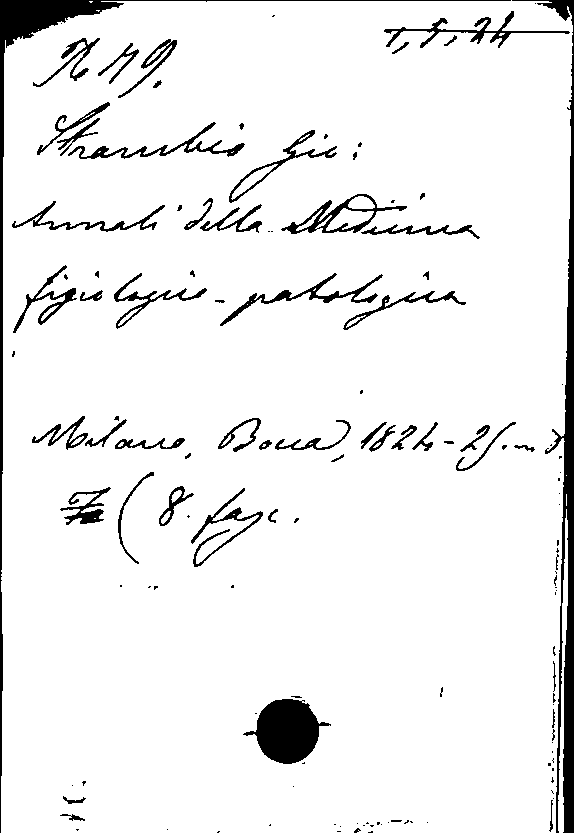 1,5,24
R 79.
Strambio Gio:
Annali della Medicina
fisiologico-patologica
Milano, Bocca, 1824-25. in 8.
( 8. fasc.